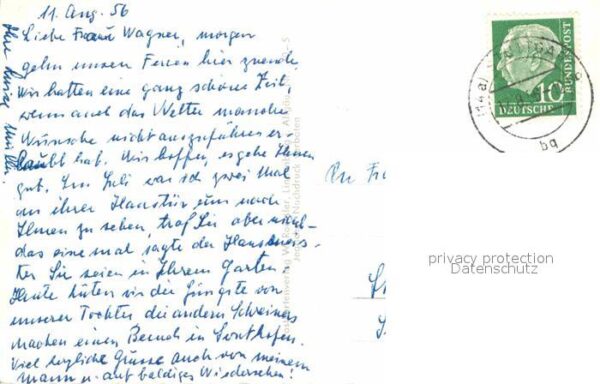 11. Aug. 56
Liebe Frau Wagner, morgen
gehn unsere Ferien hier zuende
Wir hatten eine ganz schöne Zeit,
wenn auch das Wetter manche
Wünsche nicht auszuführen er-
laubt hat. Wir hoffen, es gehe Ihnen
gut. Im Juli war ich zwei Mal
an ihrer Haustür um nach
Ihnen zu sehen, traf Sie aber nicht-
das eine mal sagte der Hausmeis-
ter Sie seien in Ihrem Garten-
Heute hüten wir die Jüngste von
unserer Tochter die andern Schreiners
machen einen Besuch in Sonthofen.
Viel herzliche Grüsse auch von meinem
Mann u. auf baldiges Wiedersehen!
Ihre
An Fr
10
DEUTSCHE
BUNDESPOST
(14a)
bq
privacy protection
Datenschutz